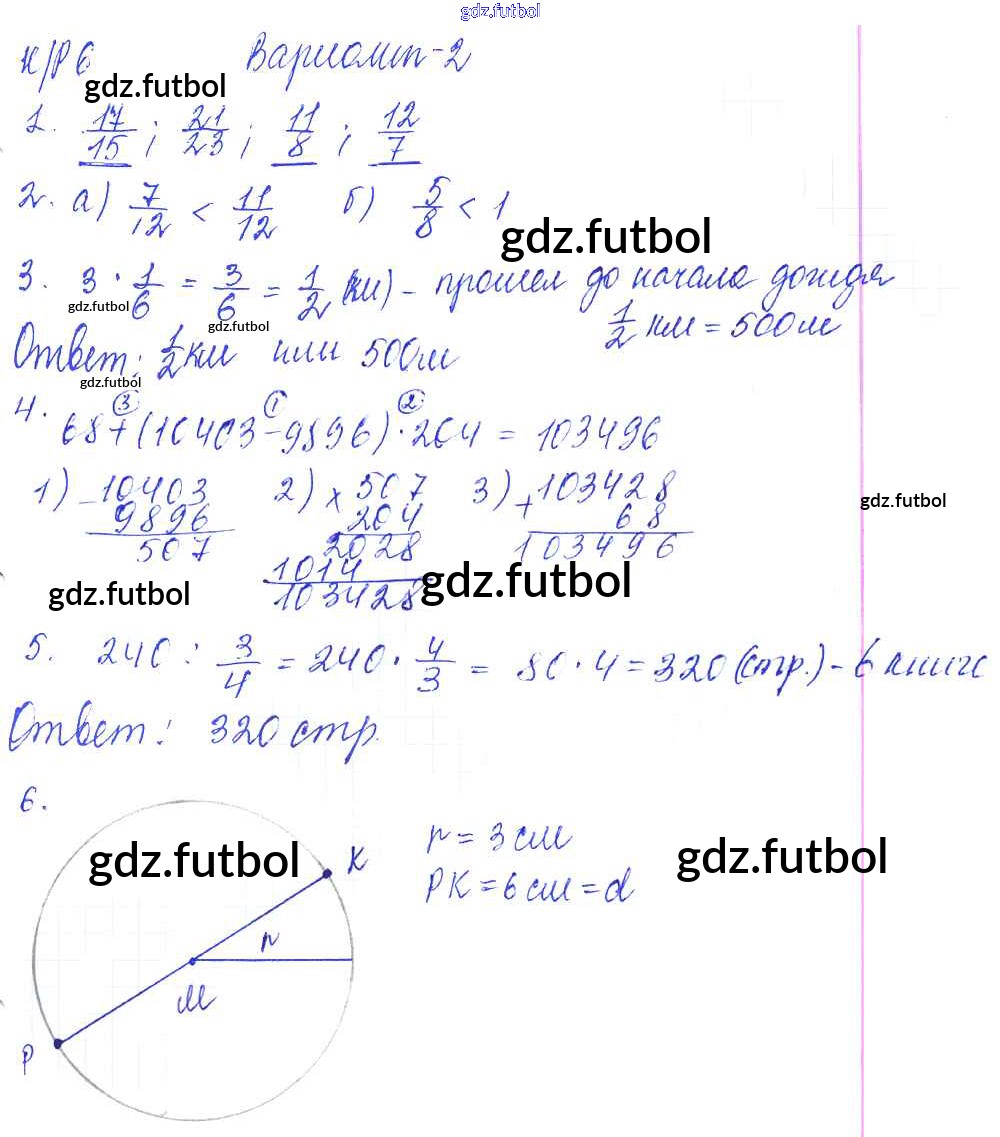 gdz.futbol
К/Р 6 Вариант-2
gdz.futbol
1. 17/15 ; 21/23 ; 11/8 ; 12/7
2. а) 7/12 < 11/12 б) 5/8 < 1
gdz.futbol
3. 3 · 1/6 = 3/6 = 1/2 (км) - прошел до начала дождя
gdz.futbol gdz.futbol
1/2 км = 500 м
Ответ: 1/2 км или 500м
gdz.futbol
4. 68+(10403-9896)·204 = 103496
③ ① ②
1) 2) 3)
- 10403 × 507 + 103428
9896 204 68
507 2028 103496
1014
103428
gdz.futbol
gdz.futbol gdz.futbol
5. 240 : 3/4 = 240 · 4/3 = 80 · 4 = 320 (стр.) - в книге
Ответ: 320 стр.
6.
gdz.futbol К r = 3 см gdz.futbol
РК = 6 см = d
r
М
Р